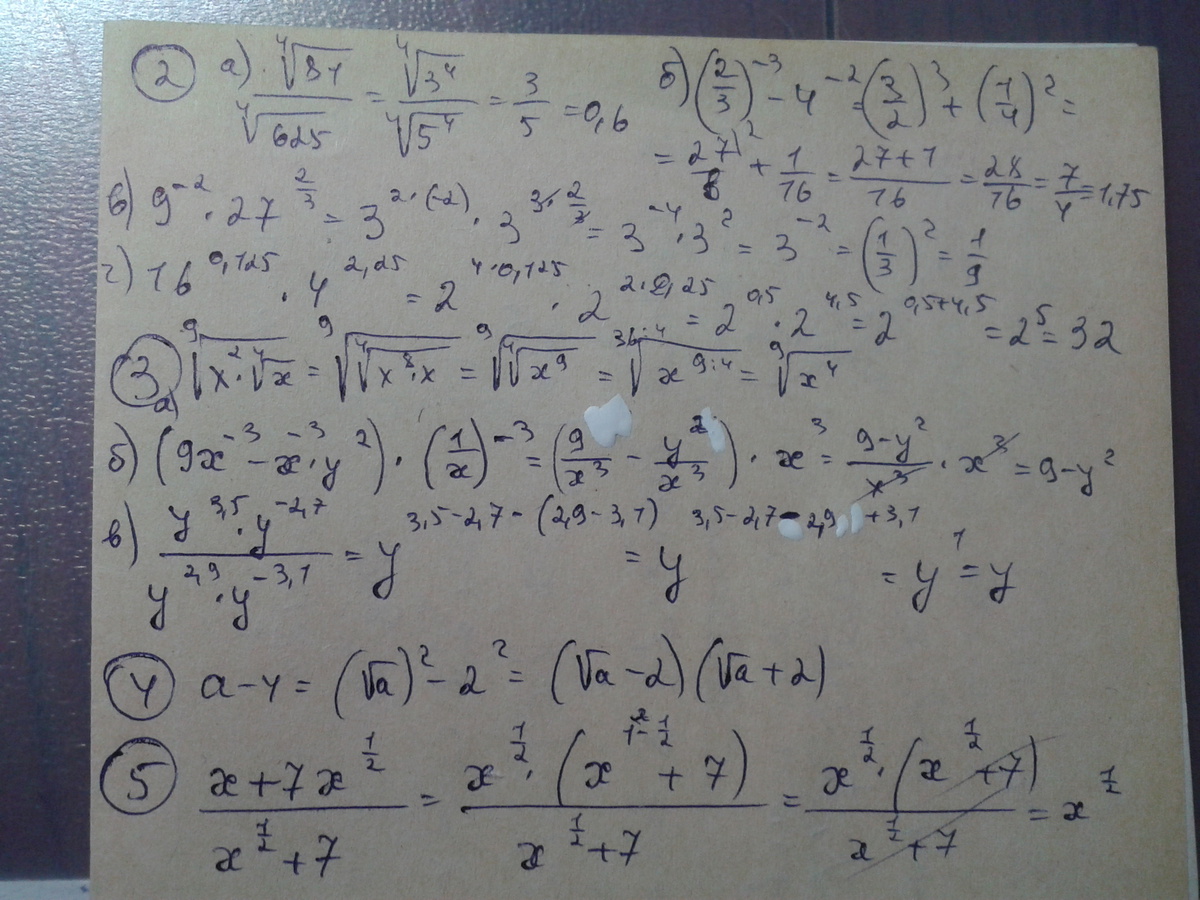 ② а) ⁴√81 / ⁴√625 = ⁴√3⁴ / ⁴√5⁴ = 3/5 = 0,6
б) (2/3)⁻³ - 4⁻² = (3/2)³ + (1/4)² =
= 27/8 |² + 1/16 = (27+1)/16 = 28/16 = 7/4 = 1,75
в) 9⁻² · 27^(2/3) = 3^(2·(-2)) · 3^(3·2/3) = 3⁻⁴ · 3² = 3⁻² = (1/3)² = 1/9
г) 16^(0,125) · 4^(2,25) = 2^(4·0,125) · 2^(2·2,25) = 2^(0,5) · 2^(4,5) = 2^(0,5+4,5) = 2⁵ = 32
③ а) ⁹√(x²·⁴√x) = ⁹√(⁴√(x⁸·x)) = ⁹√(⁴√(x⁹)) = ^(36:4)√(x^(9:4)) = ⁹√(x⁴)
б) (9x⁻³ - x⁻³·y²) · (1/x)⁻³ = (9/x³ - y²/x³) · x³ = (9-y²)/x³ · x³ = 9-y²
в) (y^(3,5) · y^(-2,7)) / (y^(2,9) · y^(-3,1)) = y^(3,5-2,7-(2,9-3,1)) = y^(3,5-2,7-2,9+3,1) = y¹ = y
④ a-4 = (√a)² - 2² = (√a-2)(√a+2)
⑤ (x+7x^(1/2)) / (x^(1/2)+7) = (x^(1/2) · (x^(1-1/2) + 7)) / (x^(1/2)+7) = (x^(1/2) · (x^(1/2)+7)) / (x^(1/2)+7) = x^(1/2)